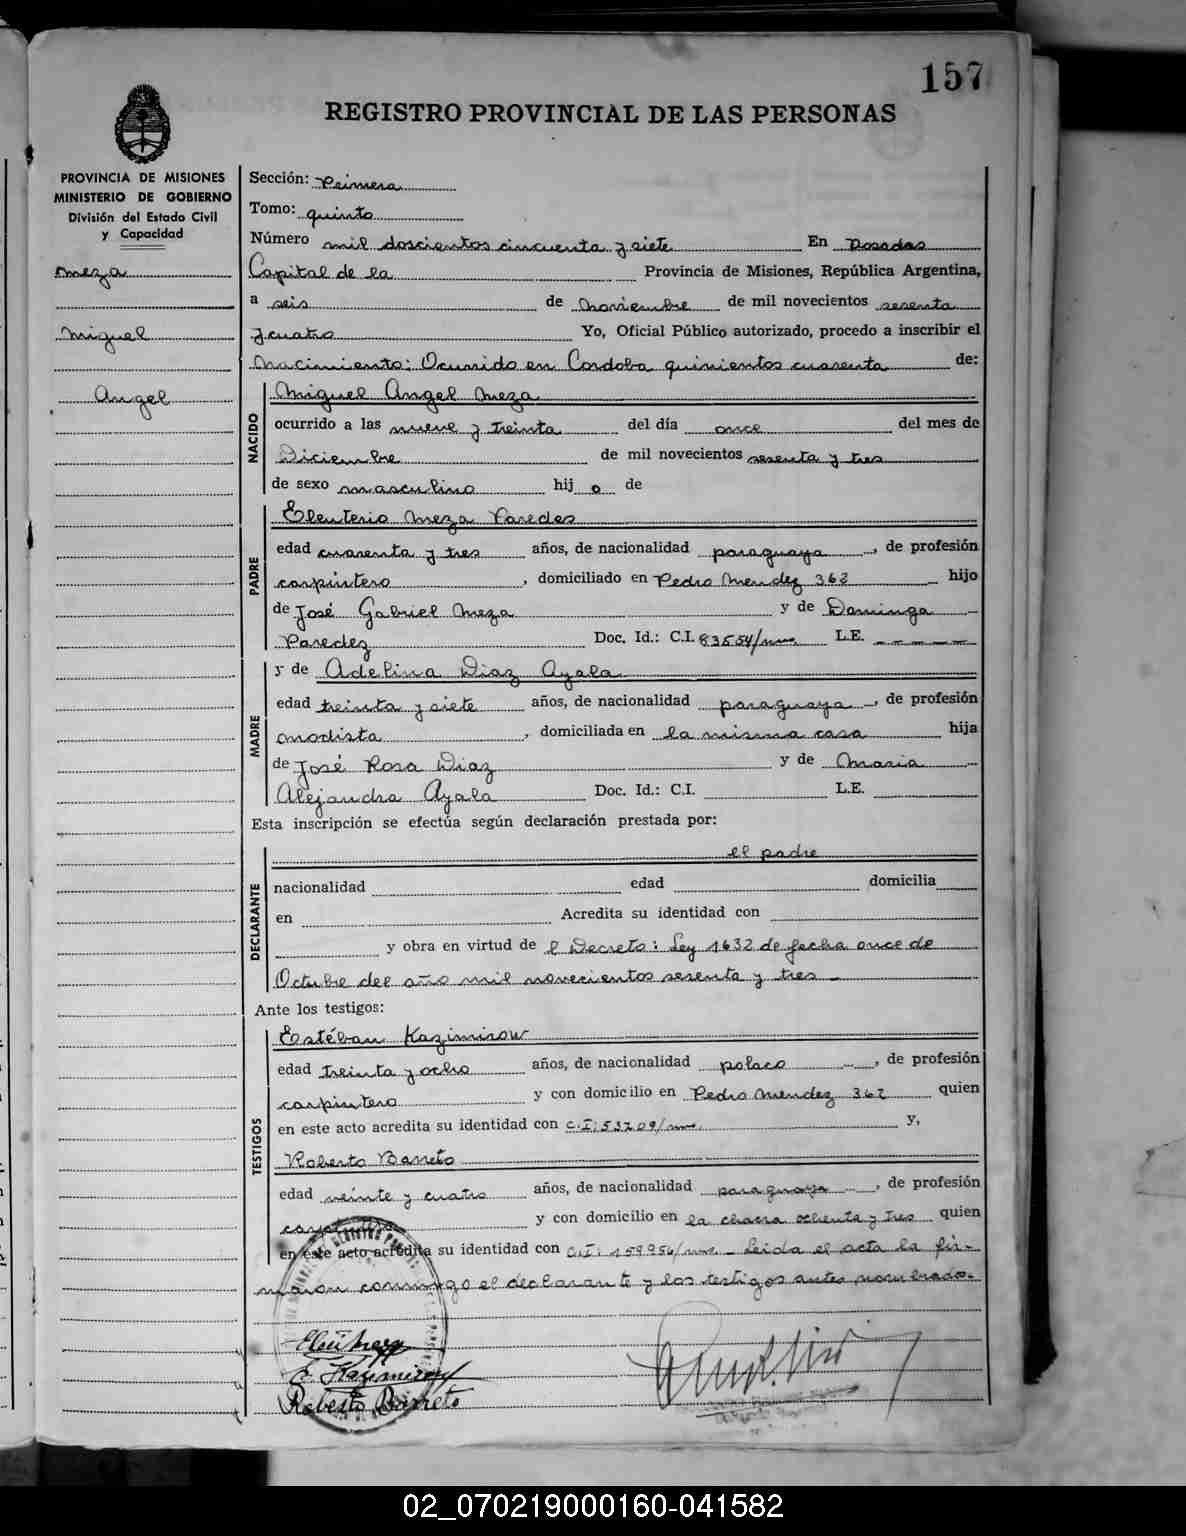 157
REGISTRO PROVINCIAL DE LAS PERSONAS
PROVINCIA DE MISIONES
MINISTERIO DE GOBIERNO
División del Estado Civil
y Capacidad
Meza
Miguel
Angel
Sección: Primera
Tomo: quinto
Número mil doscientos cincuenta y siete En Posadas
Capital de la Provincia de Misiones, República Argentina,
a seis de Noviembre de mil novecientos sesenta
y cuatro Yo, Oficial Público autorizado, procedo a inscribir el
Nacimiento: Ocurrido en Cordoba quinientos cuarenta de:
NACIDO
Miguel Angel Meza
ocurrido a las nueve y treinta del día once del mes de
Diciembre de mil novecientos sesenta y tres
de sexo masculino hij o de
PADRE
Eleuterio Meza Paredes
edad cuarenta y tres años, de nacionalidad paraguaya, de profesión
carpintero, domiciliado en Pedro Mendez 362 hijo
de José Gabriel Meza y de Dominga
Paredez Doc. Id.: C.I. 83554/mnes. L.E. _ _ _ _ _
MADRE
y de Adelina Diaz Ayala
edad treinta y siete años, de nacionalidad paraguaya, de profesión
modista, domiciliada en la misma casa hija
de José Rosa Diaz y de Maria
Alejandra Ayala Doc. Id.: C.I. L.E.
Esta inscripción se efectúa según declaración prestada por:
DECLARANTE
el padre
nacionalidad edad domicilia
en Acredita su identidad con
y obra en virtud de l Decreto: Ley 1632 de fecha once de
Octubre del año mil novecientos sesenta y tres _
Ante los testigos:
TESTIGOS
Estéban Kazimirow
edad treinta y ocho años, de nacionalidad polaco, de profesión
carpintero y con domicilio en Pedro Mendez 362 quien
en este acto acredita su identidad con C.I: 53209/mns. y,
Roberto Barreto
edad veinte y cuatro años, de nacionalidad paraguaya, de profesión
carpintero y con domicilio en la chacra ochenta y tres quien
en este acto acredita su identidad con C.I: 159956/mns. _ Leida el acta la fir-
maron conmigo el declarante y los testigos antes nombrados.
E. Kazimirow
Roberto Barreto
02_070219000160-041582